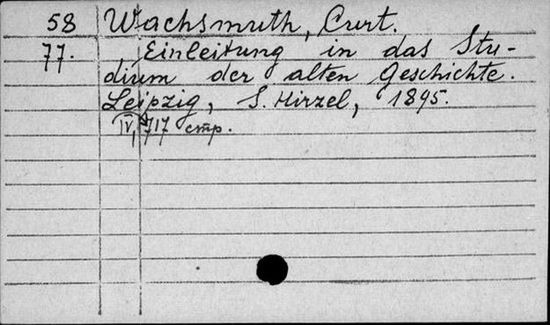 58 Wachsmuth, Curt.
77. Einleitung in das Stu-
dium der alten Geschichte.
Leipzig, S. Hirzel, 1895.
IV, 717 стр.